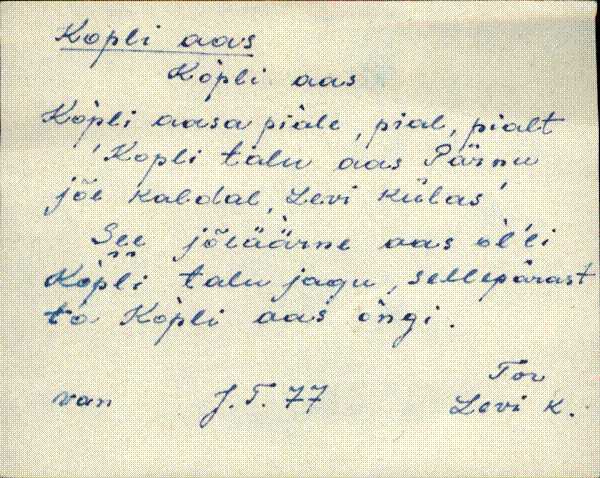 Kopli aas
Kòpli aas
Kòpli aasa piàle, pial, pialt
'Kopli talu aas Pärnu
jõe kaldal, Levi külas'
See jõeäärne aas òl'li
Kòpli talu jagu, sellepärast
ta Kòpli aas ongi.
Tor
van J.T. 77 Levi k.